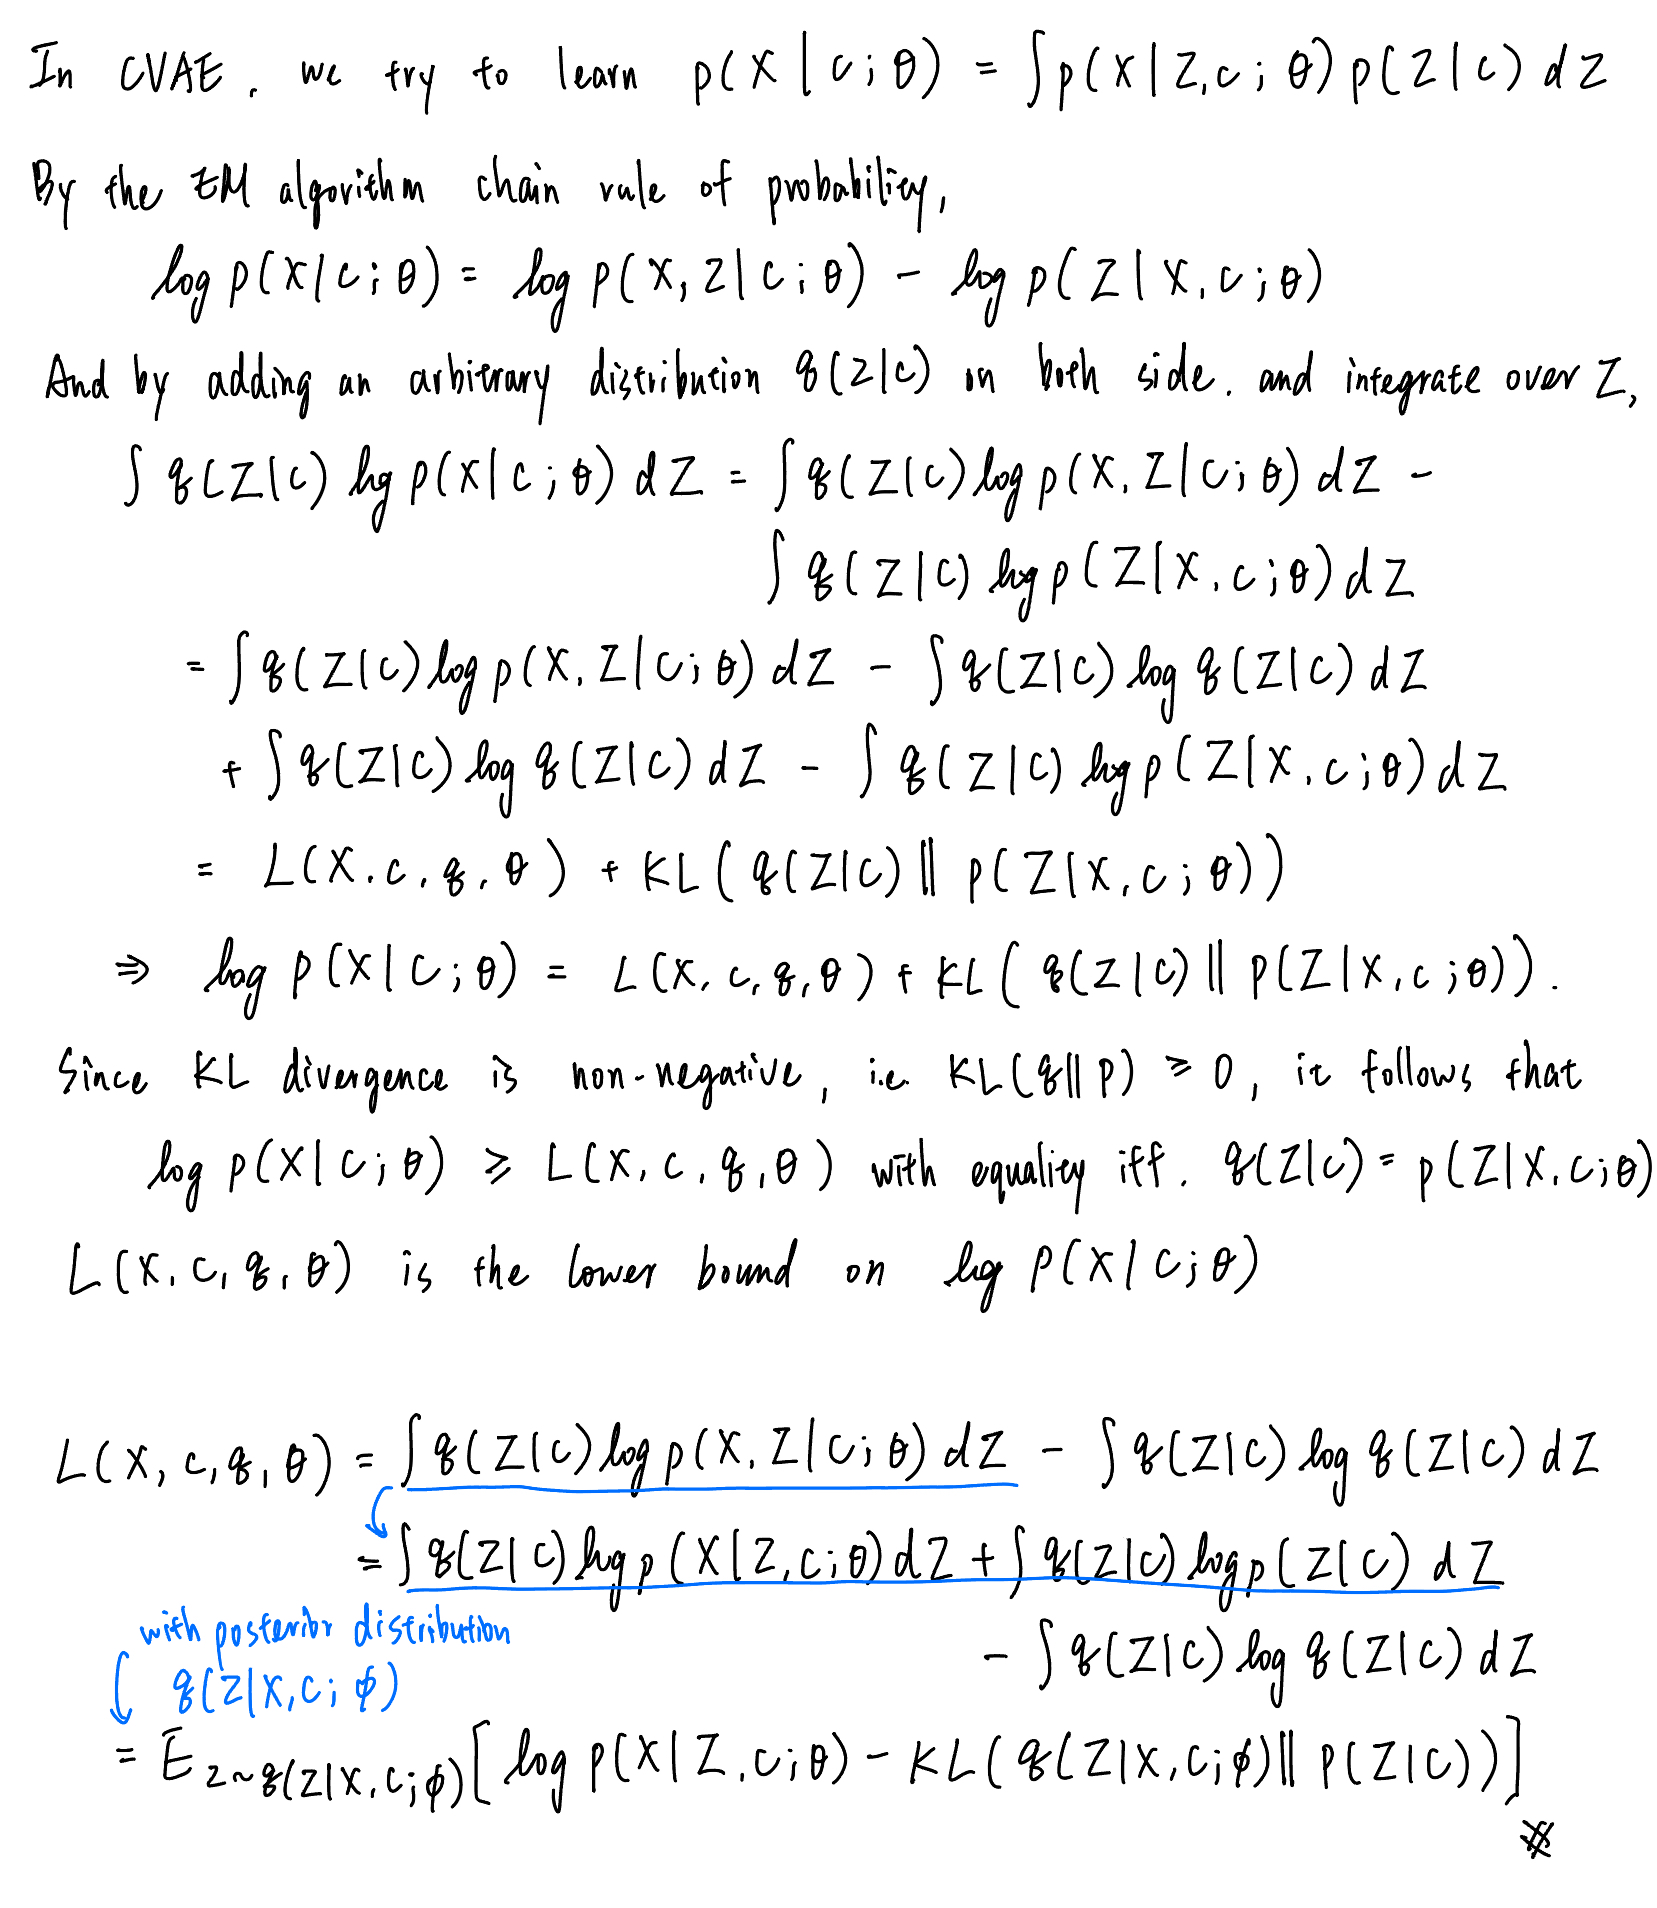 In CVAE, we try to learn p(X|c;θ) = ∫p(X|Z,c;θ)p(Z|c)dZ
By the EM algorithm chain rule of probability,
log p(X|c;θ) = log p(X,Z|c;θ) - log p(Z|X,c;θ)
And by adding an arbitrary distribution q(Z|c) on both side, and integrate over Z,
∫q(Z|c) log p(X|c;θ) dZ = ∫q(Z|c) log p(X,Z|c;θ) dZ -
∫q(Z|c) log p(Z|X,c;θ) dZ
= ∫q(Z|c) log p(X,Z|c;θ) dZ - ∫q(Z|c) log q(Z|c) dZ
+ ∫q(Z|c) log q(Z|c) dZ - ∫q(Z|c) log p(Z|X,c;θ) dZ
= L(X,c,q,θ) + KL(q(Z|c) || p(Z|X,c;θ))
⇒ log p(X|c;θ) = L(X,c,q,θ) + KL(q(Z|c) || p(Z|X,c;θ)).
Since KL divergence is non-negative, i.e. KL(q||p) ≥ 0, it follows that
log p(X|c;θ) ≥ L(X,c,q,θ) with equality iff. q(Z|c) = p(Z|X,c;θ)
L(X,c,q,θ) is the lower bound on log p(X|c;θ)
L(X,c,q,θ) = ∫q(Z|c) log p(X,Z|c;θ) dZ - ∫q(Z|c) log q(Z|c) dZ
= ∫q(Z|c) log p(X|Z,c;θ) dZ + ∫q(Z|c) log p(Z|c) dZ
- ∫q(Z|c) log q(Z|c) dZ
with posterior distribution
q(Z|X,c;ϕ)
= E z~q(Z|X,c;ϕ) [log p(X|Z,c;θ) - KL(q(Z|X,c;ϕ) || p(Z|c))]